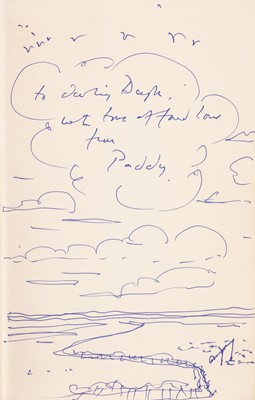 to darling Daph,
with tons of fond love
from
Paddy